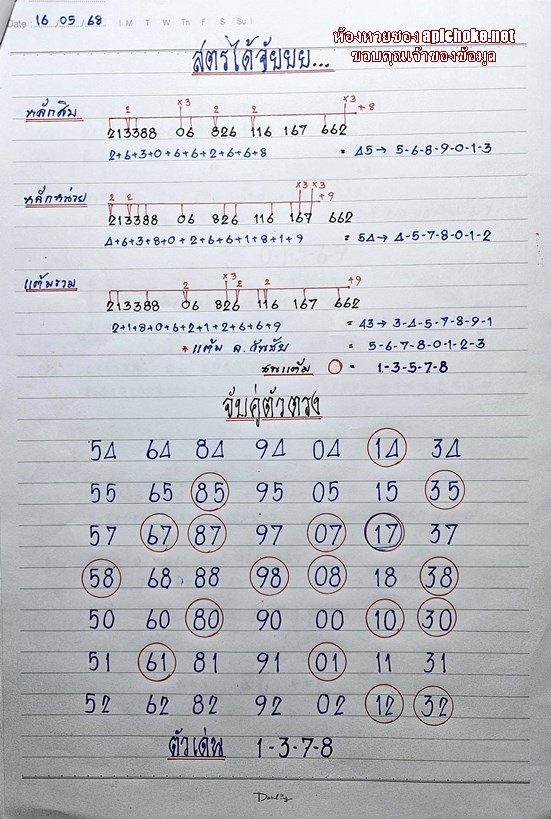 Date : 16 / 05 / 68 M T W Th F S Su
ห้องหวยของ aplchoke.net
ขอบคุณเจ้าของข้อมูล
สูตรได้จัยยย...
หลักสิบ 2 x3 2 2 x3 +8
213388 06 826 116 167 662
2+6+3+0+6+6+2+6+6+8 = 45 → 5-6-8-9-0-1-3
หลักหน่วย 2 2 x3 x3 +9
213388 06 826 116 167 662
4+6+3+8+0+2+6+6+1+8+1+9 = 54 → 4-5-7-8-0-1-2
แต้มรวม 2 x3 2 2 +9
213388 06 826 116 167 662
2+1+8+0+6+2+1+2+6+6+9 = 43 → 3-4-5-7-8-9-1
* แต้ม ล.วันชัย = 5-6-7-8-0-1-2-3
ชนแต้ม = 1-3-5-7-8
จับคู่ตัวตรง
54 64 84 94 04 14 34
55 65 85 95 05 15 35
57 67 87 97 07 17 37
58 68 88 98 08 18 38
50 60 80 90 00 10 30
51 61 81 91 01 11 31
52 62 82 92 02 12 32
ตัวเด่น 1-3-7-8